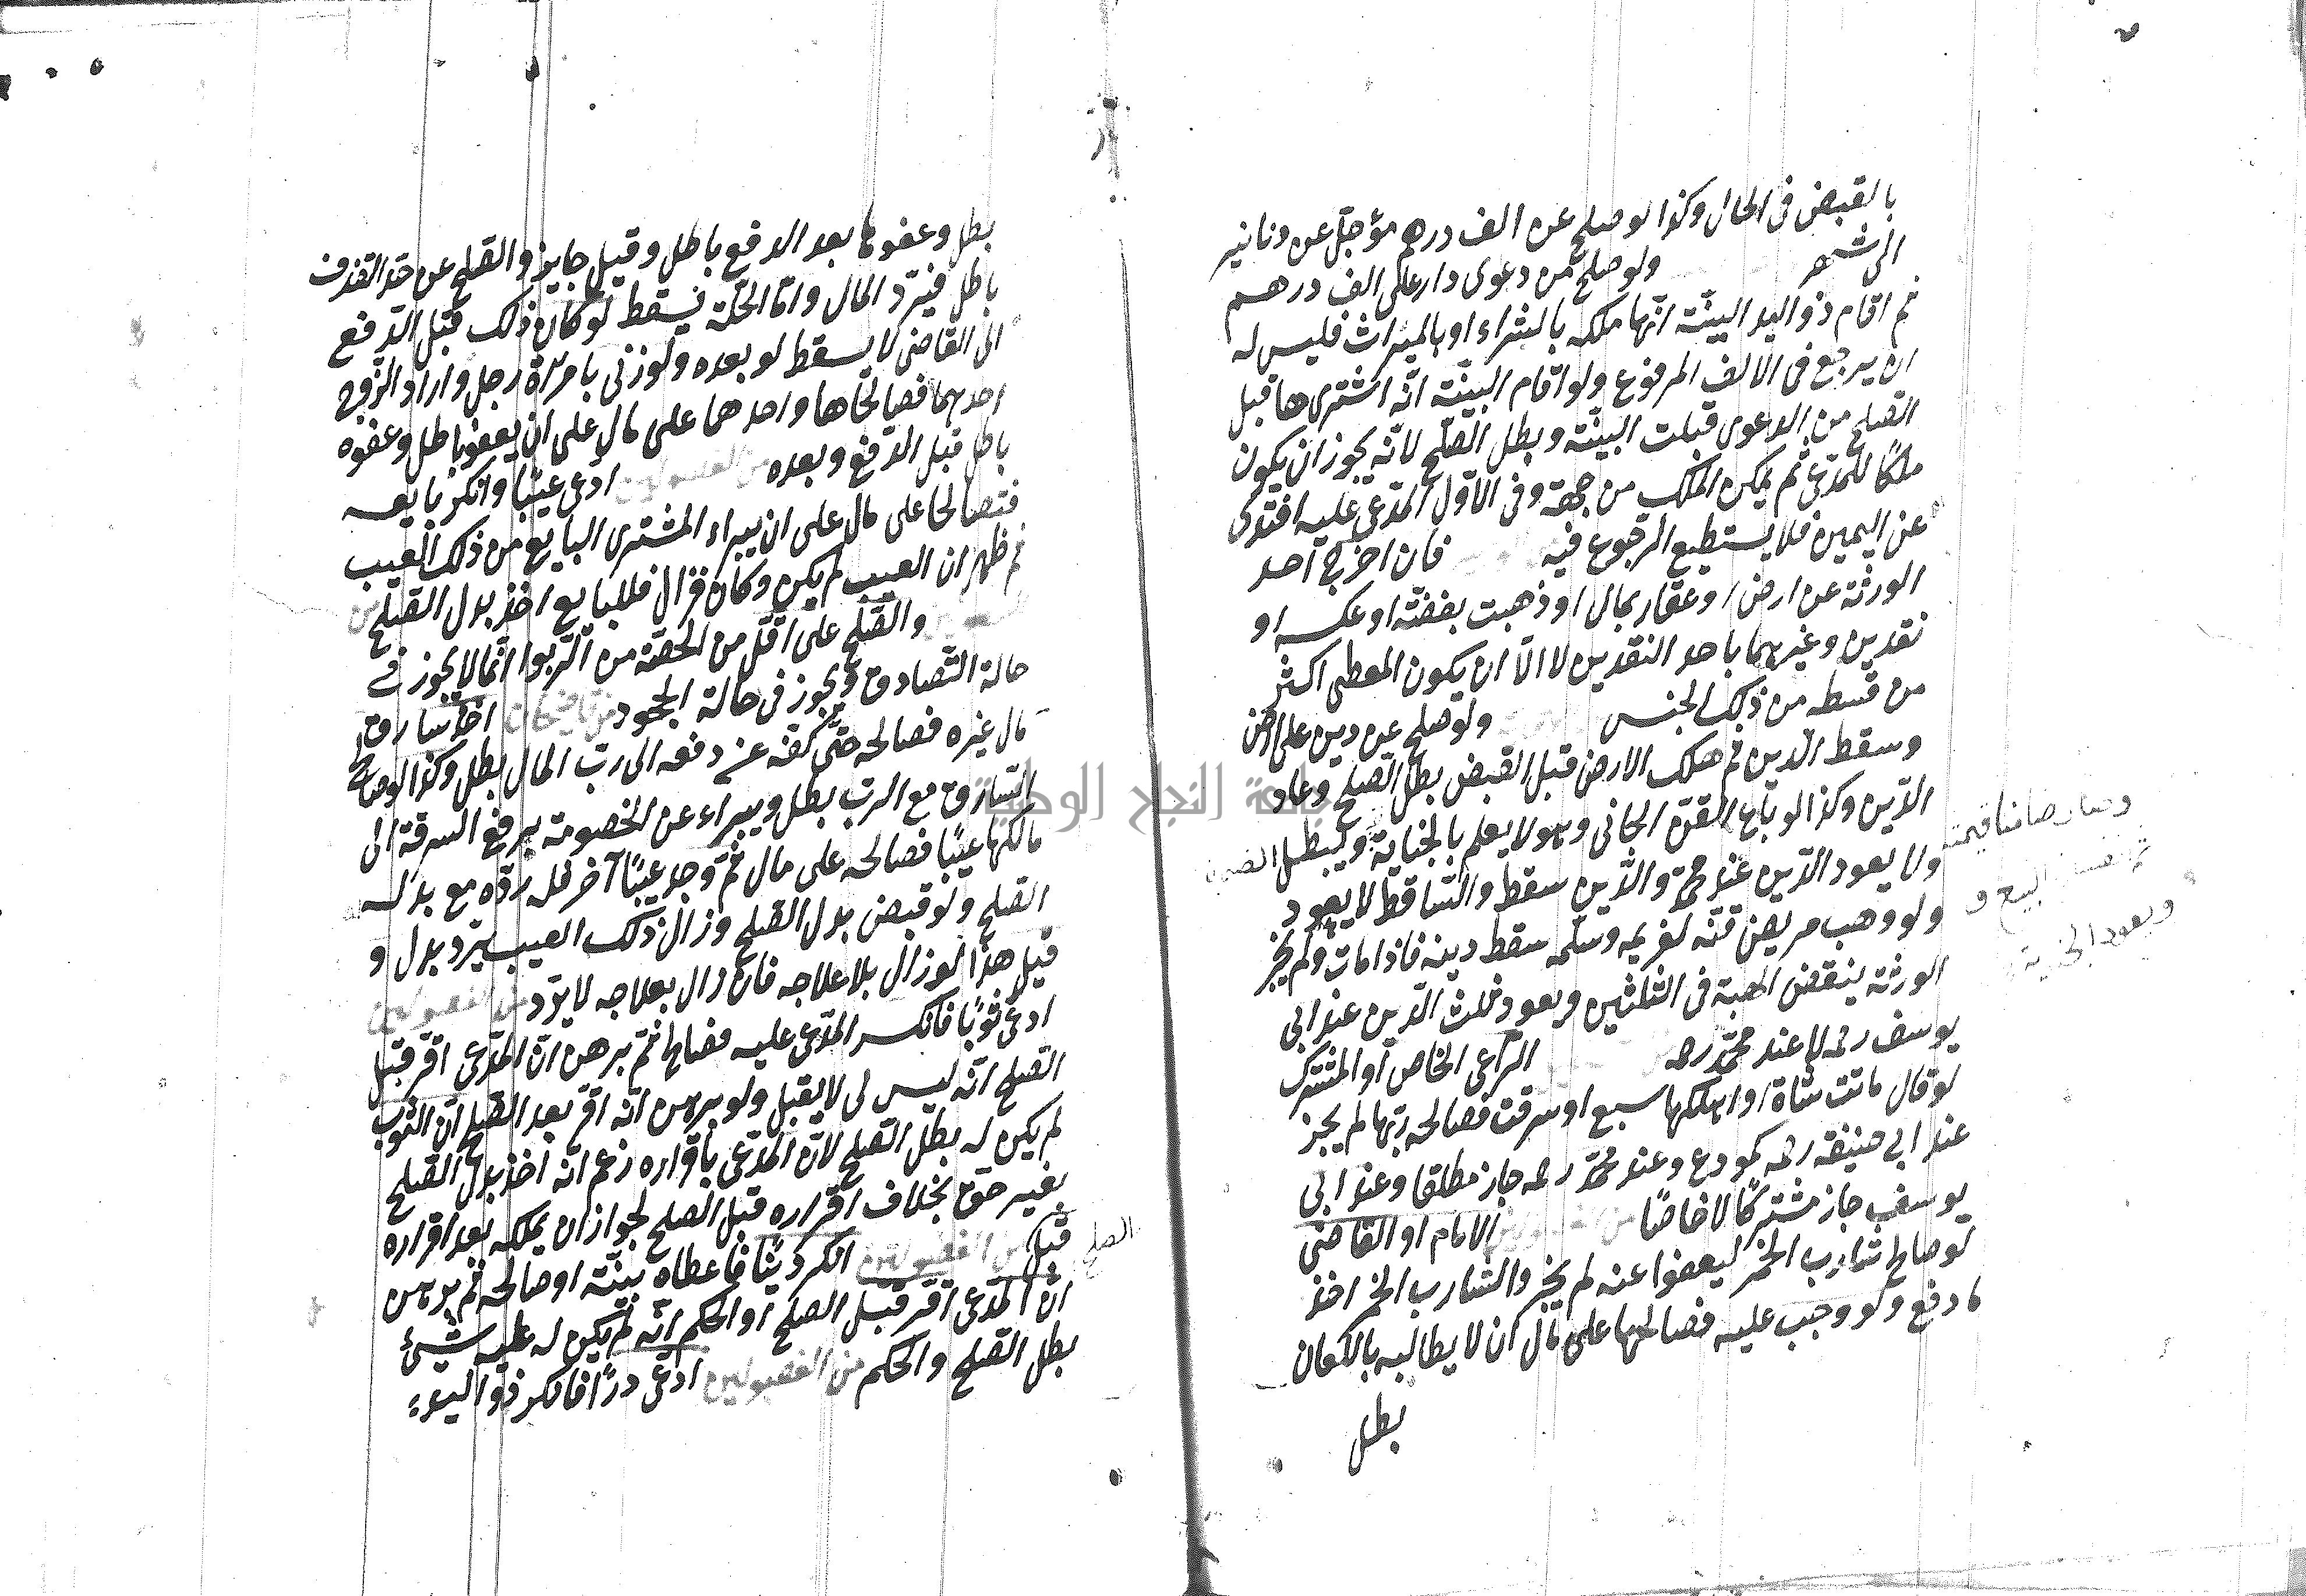 بالقبض فى الحال وكذا لو صلح عن الف درهم مؤجل عن دنانير
الى شهر ولو صلح من دعوى دار على الف درهم
ثم اقام ذو اليد البينة انها ملكه بالشراء او بالميراث فليس له
ان يرجع فى الالف المرفوع ولو اقام البينة انه اشترى ها قبل
الصلح من الدعوى قبلت البينة وبطل الصلح لانه يجوز ان يكون
ملكا للمدعى ثم يمكن الملك من جهة وفى الاول المدعى عليه افتدى
عن اليمين فلا يستطيع الرجوع فيه فان اخرج احد
الورثة عن ارض او عقار بمال او ذهبت بفضة او عكسه او
نقدين وغيرهما باحد النقدين لا الا ان يكون المعطى اكثر
من قسطه من ذلك الجنس ولو صلح عن دين على ارض
وسقط الدين ثم هلك الارض قبل القبض بطل الصلح وعاد
الدين وكذا لو باع القن الجانى وهو لا يعلم بالجناية ويبطل
ولا يعود الدين عند محمد والدين سقط والساقط لا يعود
ولو وهب مريض قنه لغريمه وسلمه سقط دينه فاذا مات ولم يجز
الورثة ينقض الهبة فى الثلثين ويعود ثلث الدين عند ابى
يوسف رحمه لا عند محمد رحمه الراعى الخاص او المشترك
لو قال ماتت شاة او اهلكها سبع او سرقت فصالحه ربها لم يجز
عند ابى حنيفة رحمه كمودع وعند محمد رحمه جاز مطلقا وعند ابى
يوسف جاز مشتركا لا خاصا الامام او القاضى
لو صالح شارب الخمر ليعفوا عنه لم يجز والشارب الخمر اخذ
ما دفع ولو وجب عليه فصالحها على مال ان لا يطالبه باللعان
بطل
وصار ضامنا قيمته
البيع و
بطل وعفوها بعد الدفع باطل وقيل جايز والصلح عن حد القذف
باطل فيرد المال واما الحد فيسقط لو كان ذلك قبل الدفع
الى القاضى لا يسقط لو بعده ولو زنى بامرأة رجل واراد الزوج
احدهما فصالحاها واحدهما على مال على ان يعفو باطل وعفوه
باطل قبل الدفع وبعده من الفصولين ادعى عيبا وانكر بايعه
فتصالحا على مال على ان يبراء المشترى البايع من ذلك العيب
ثم ظهر ان العيب لم يكن وكان فزال فللبايع اخذ بدل الصلح من
والصلح على اقل من الحقة من الربوا انما لا يجوز فى
حالة التصادق ويجوز فى حالة الجحود اخذ سارق
مال غيره فصالحه حتى كفه عن دفعه الى رب المال بطل وكذا لو صالح
السارق مع الرب بطل ويبراء عن الخصومة برفع السرقة الى
مالكها عيبا فصالحه على مال ثم وجد عيبا آخر فله رده مع بدله
الصلح ولو قبض بدل الصلح وزال ذلك العيب يرد بدل و
قيل هذا لو زال بلا علاجه فان زال بعلاجه لا يرد من الفصولين
ادعى ثوبا فانكر المدعى عليه فصالحا ثم برهن ان المدعى اقر قبل
الصلح انه ليس لى لا يقبل ولو برهن انه اقر بعد الصلح ان الثوب
لم يكن له بطل الصلح لان المدعى باقراره زعم انه اخذ بدل الصلح
بغير حق بخلاف اقراره قبل الصلح لجواز ان يملكه بعد اقراره
قبل الصلح من الفصولين انكر دينا فاعطاه بينة او صالحه ثم برهن
ان المدعى اقر قبل الصلح او الحكم انه لم يكن له عليه شيئ
بطل الصلح والحكم من الفصولين ادعى درا فانكر ذو اليد
جامعة النجاح الوطنية